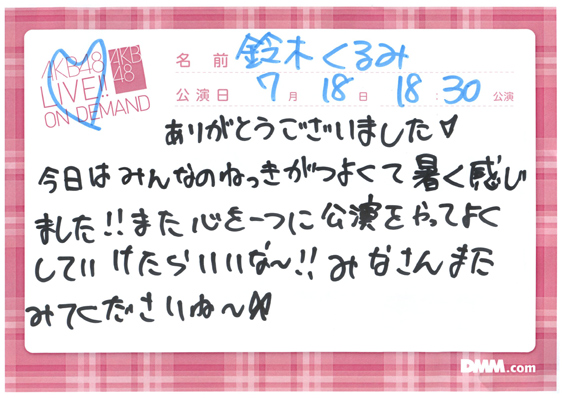 AKB48
LIVE!!
ON DEMAND
AKB
48
名前 鈴木くるみ
公演日 7月 18日 18:30 公演
ありがとうございました♡
今日はみんなのねっきがつよくて暑く感じ
ました!!また心を一つに公演をやってよく
していけたらいいな〜!!みなさんまた
みてくださいね〜
DMM.com